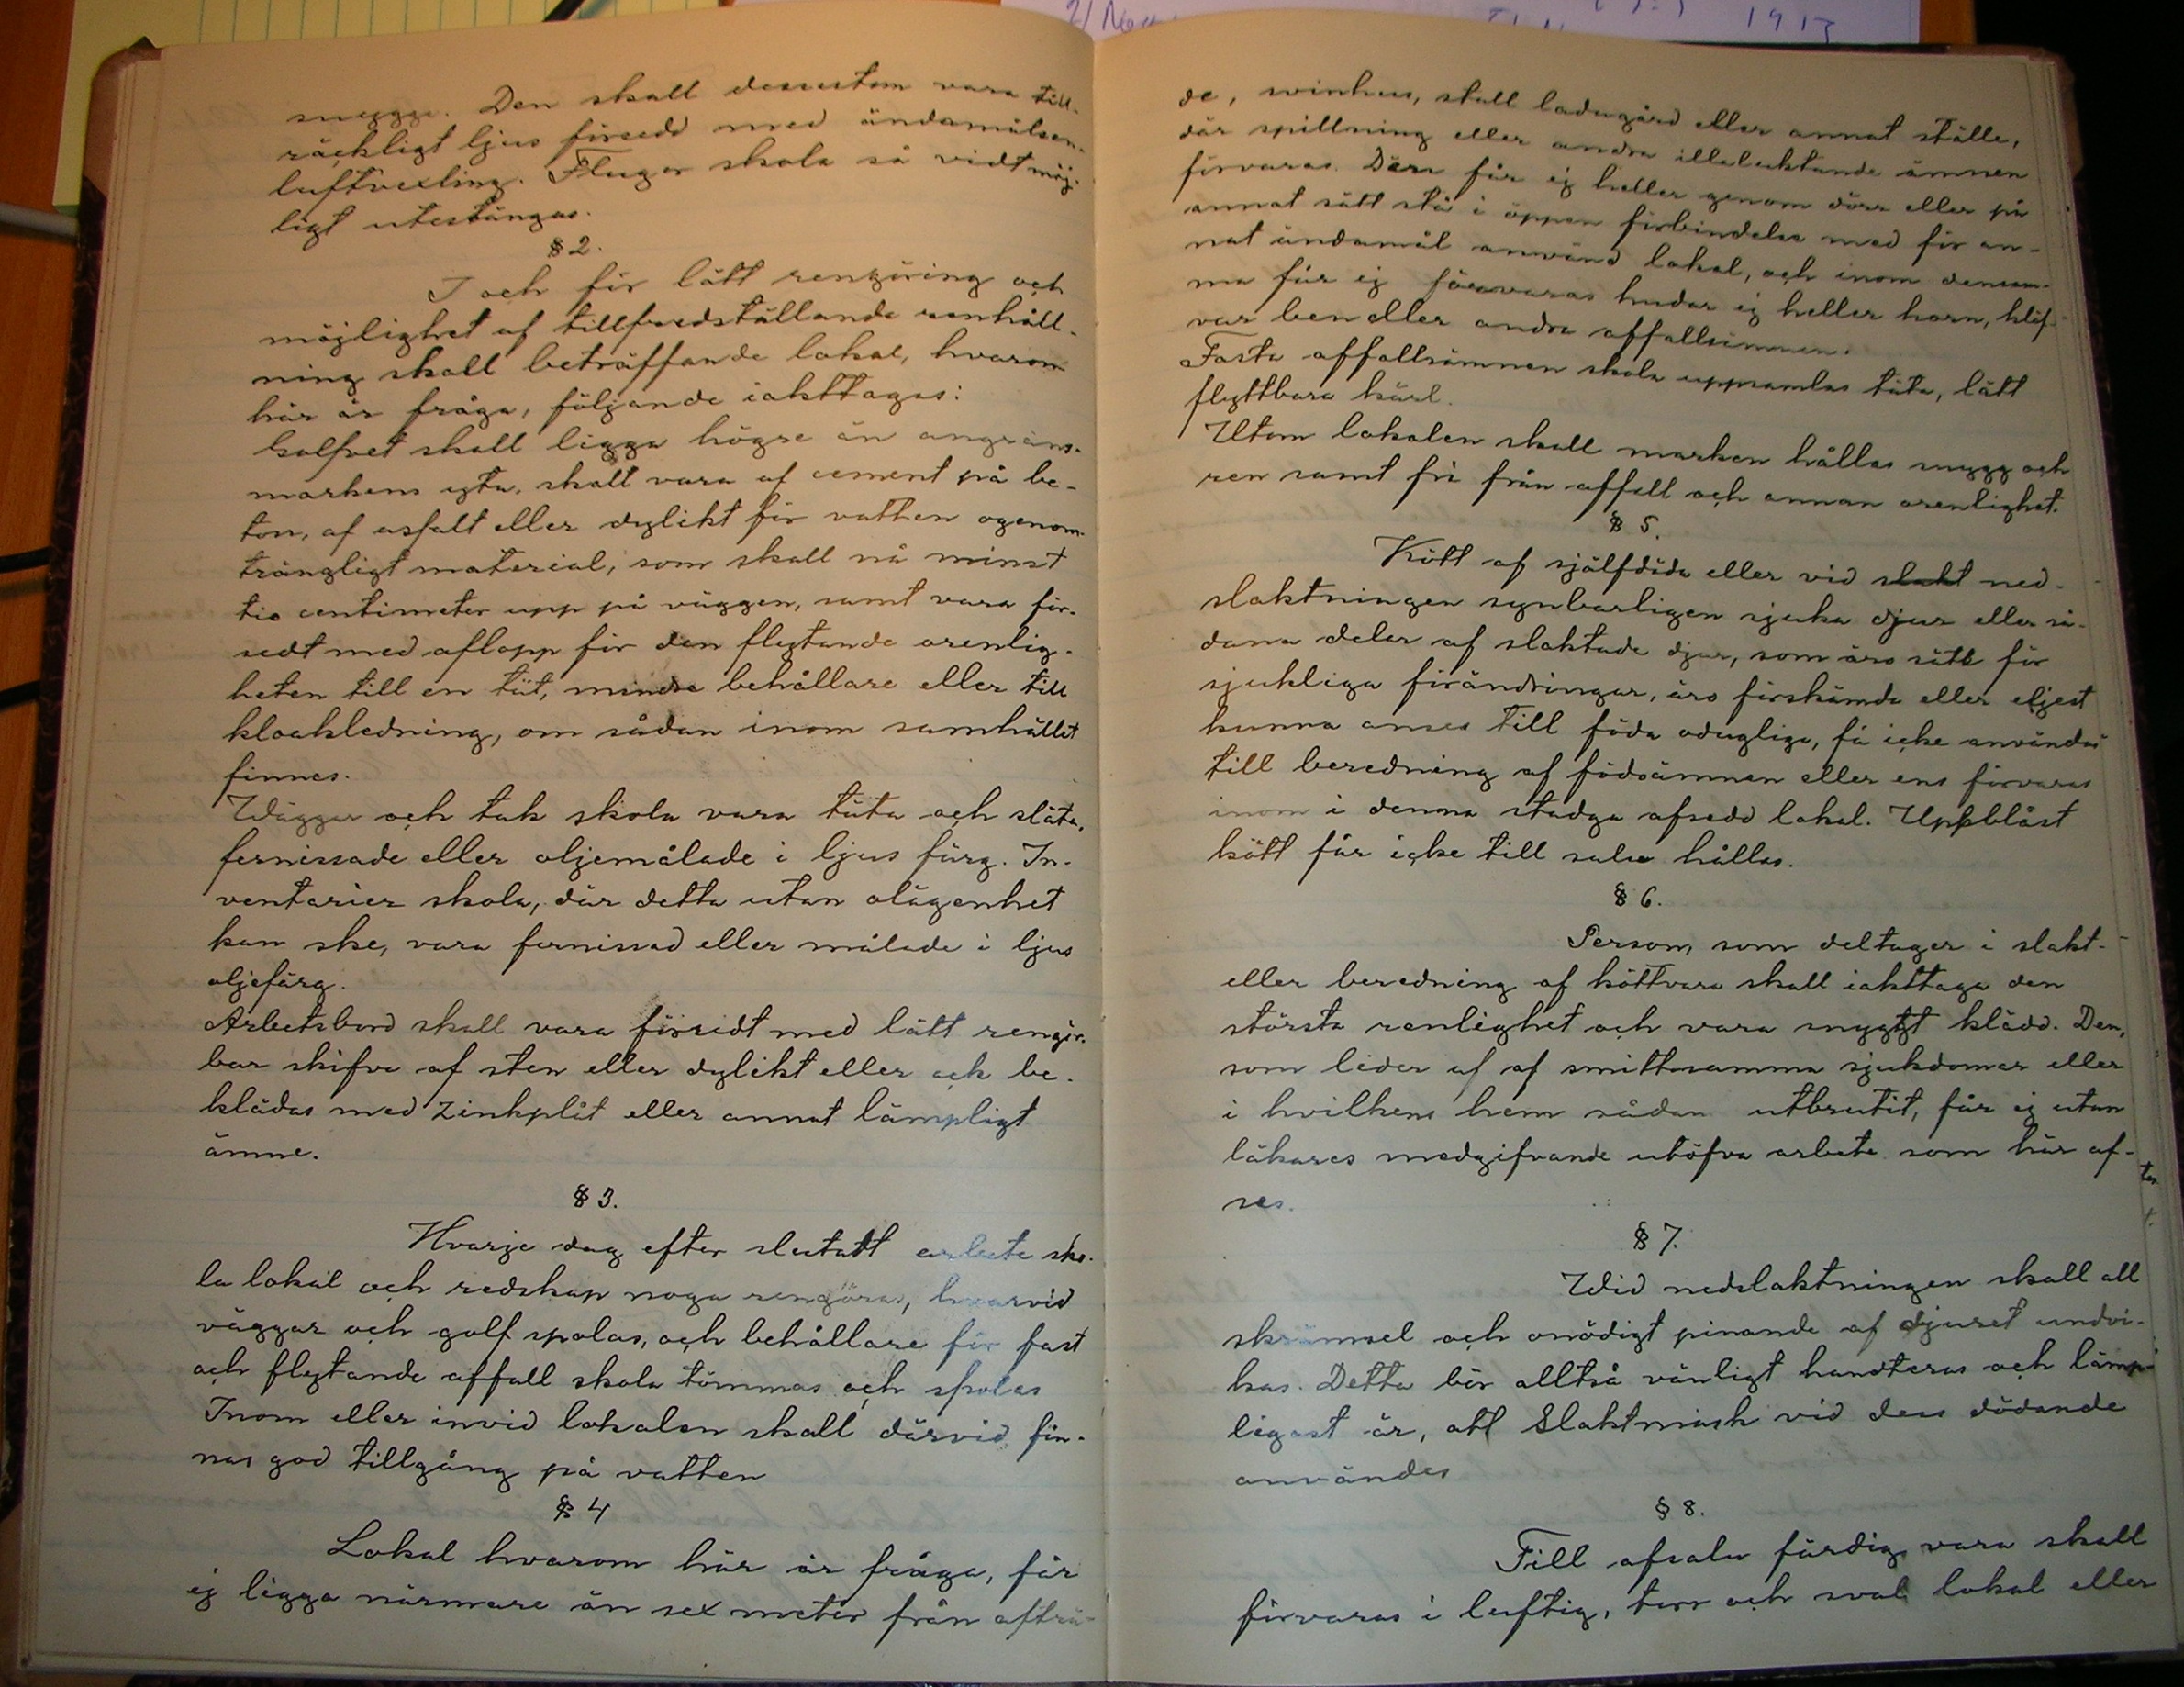 2/
1913
snygge. Den skall dessutom vara till-
räckligt ljus försedd med ändamålsen.
luftvexling. Flugor skola så vidt möj-
ligt utestängas.
§ 2.
I och för lätt rengöring och
möjlighet af tillfredställande renhåll-
ning skall beträffande lokal, hvarom
här är fråga, följande iakttagas:
Golfvet skall ligga högre än angräns.
markens yta, skall vara af cement på be-
ton, af asfalt eller dylikt för vatten ogenom-
trängligt material, som skall nå minst
tio centimeter upp på väggen, samt vara för-
sedt med aflopp för den flytande orenlig-
heten till en tät, mindre behållare eller till
kloakledning, om sådan inom samhället
finnes.
Wäggar och tak skola vara täta och släta,
fernissade eller oljemålade i ljus färg. In-
ventarier skola, där detta utan olägenhet
kan ske, vara fernissad eller målade i ljus
oljefärg.
Arbetsbord skall vara försedt med lätt rengör-
bar skifva af sten eller dylikt eller ock be-
klädas med zinkplåt eller annat lämpligt
ämne.
§ 3.
Hvarje dag efter slutatt arbete sko-
la lokal och redskap noga rengöras, hvarvid
väggar och golf spolas, och behållare för fast
och flytande affall skola tömmas och spolas
Inom eller invid lokalen skall därvid fin-
nas god tillgång på vatten
§ 4
Lokal hvarom här är fråga, får
ej ligga närmare än sex meter från afträ-
de, svinhus, stall ladugård eller annat ställe,
där spillning eller andra illaluktande ämnen
förvaras. Den får ej heller genom dörr eller på
annat sätt stå i öppen förbindelse med för an-
nat ändamål använd lokal, och inom densam-
ma får ej förvaras hudar ej heller horn, klöf-
var ben eller andra affallsämnen.
Fasta affallsämnen skola uppsamlas täta, lätt
flyttbara kärl.
Utom lokalen skall marken hållas snygg och
ren samt fri från affall och annan orenlighet.
§ 5.
Kött af själfdöda eller vid slakt ned-
slaktningen synbarligen sjuka djur eller så-
dana delar af slaktade djur, som äro säte för
sjukliga förändringar, äro förskämda eller eljest
kunna anses till föda odugliga, få icke användas
till beredning af födoämnen eller ens förvaras
inom i denna stadga afsedd lokal. Uppblåst
kött får icke till salu hållas.
§ 6.
Person, som deltager i slakt-
eller beredning af köttvara skall iakttaga den
största renlighet och vara snyggt klädd. Den,
som lider af af smittosamma sjukdomar eller
i hvilkens hem sådan utbrutit, får ej utan
läkares medgifvande utöfva arbete som här af-
ses.
§ 7.
Wid nedslaktningen skall all
skrämsel och onödigt pinande af djuret undvi-
kas. Detta bör alltså vänligt handteras och lämp-
ligast är, att Slaktmask vid dess dödande
användes
§ 8.
Till afsalu färdig vara skall
förvaras i luftig, torr och sval lokal eller